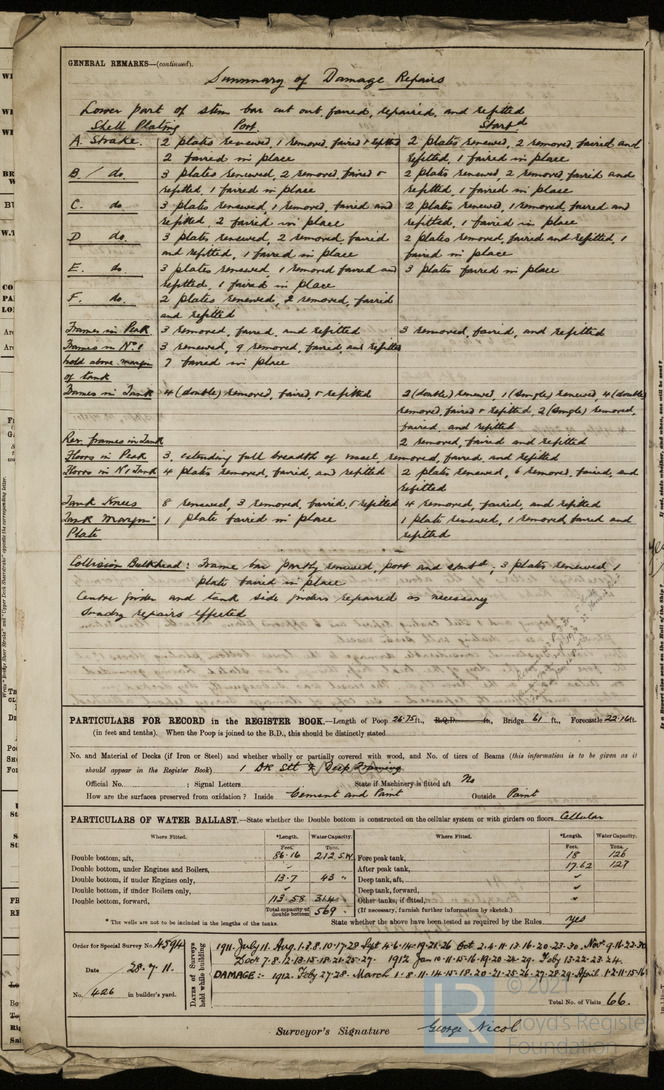 GENERAL REMARKS—(continued).
Summary of Damage Repairs
Lower part of stem bar cut out, faired, repaired, and refitted
Shell Plating Port Starbd
A. Strake. 2 plates renewed, 1 removed, faired & refitted 2 plates renewed, 2 removed, faired and
2 faired in place refitted, 1 faired in place
B / do. 3 plates renewed, 2 removed, faired & 2 plates renewed, 2 removed faired and
refitted, 1 faired in place refitted, 1 faired in place
C. do. 3 plates renewed, 1 removed, faired and 2 plates renewed, 1 removed faired and
refitted, 2 faired in place refitted, 1 faired in place
D do. 3 plates renewed, 2 removed faired 2 plates removed, faired and refitted, 1
and refitted, 1 faired in place faired in place
E. do. 3 plates renewed, 1 removed faired and 3 plates faired in place
refitted, 1 faired in place
F. do. 2 plates renewed, 2 removed, faired
and refitted
Frames in Peak 3 removed, faired, and refitted 3 removed, faired, and refitted
Frames in No 1 3 renewed, 9 removed, faired, and refitted
hold above margin 7 faired in place
of tank
Frames in Tank 4 (double) removed, faired & refitted 2 (double) renewed, 1 (single) renewed, 4 (double)
removed, faired & refitted, 2 (single) removed,
faired, and refitted
Rev. frames in Tank 2 removed, faired and refitted
Floors in Peak 3, extending full breadth of vessel, removed, faired, and refitted
Floors in No 1 Tank 4 plates removed, faired, and refitted 2 plates renewed, 6 removed, faired, and
refitted
Tank Knees 8 renewed, 3 removed, faired, & refitted 4 removed, faired, and refitted
Tank Margin 1 plate faired in place 1 plate renewed, 1 removed, faired and
Plate refitted
Collision Bulkhead: Frame bar partly renewed, port and starbd, 3 plates renewed, 1
plate faired in place
Centre girder and tank side girders repaired as necessary
Sundry repairs effected
PARTICULARS FOR RECORD in the REGISTER BOOK.—Length of Poop 26.75 ft., R.Q.D. ft., Bridge 61 ft., Forecastle 22.16 ft.
(in feet and tenths). When the Poop is joined to the B.D., this should be distinctly stated
No. and Material of Decks (if Iron or Steel) and whether wholly or partially covered with wood, and No. of tiers of Beams (this information is to be given as it
should appear in the Register Book) 1 Dk Stl & Deep Framing
Official No. ; Signal Letters State if Machinery is fitted aft No
How are the surfaces preserved from oxidation? Inside Cement and Paint Outside Paint
PARTICULARS OF WATER BALLAST.—State whether the Double bottom is constructed on the cellular system or with girders on floors Cellular
Where Fitted. *Length. Water Capacity. Where Fitted. *Length. Water Capacity.
Feet. Tons. Feet. Tons.
Double bottom, aft, 86.16 212 S.W. Fore peak tank, 18 126
Double bottom, under Engines and Boilers, After peak tank, 17.62 127
Double bottom, if under Engines only, 13.7 43 " Deep tank, aft,
Double bottom, if under Boilers only, Deep tank, forward,
Double bottom, forward, 113.58 314 Other tanks, if fitted,
Total capacity of double bottom 569 (If necessary, furnish further information by sketch.)
* The wells are not to be included in the lengths of the tanks. State whether the above have been tested as required by the Rules yes
Order for Special Survey No. 4594
Date 28.7.11.
No. 426 in builder's yard.
DATES of Surveys held while building
1911. July 11. Aug. 1.3.8.10.17.28 Sept 4.6.14.19.21.26 Oct 2.4.11.13.16.20.23.30. Nov. 9.16.22.30
Decr 7.8.12.13.15.18.21.25.27. 1912 Jan 10.11.15.16.19.24.29. Feby 13.22.23.24.
DAMAGE:- 1912. Feby 27.28. March 1.8.11.14.15.18.20.21.25.26.27.28.29. April 1.2.11.15.16
Total No. of Visits 66.
Surveyor's Signature George Nicol
© 2021
Lloyd's Register
Foundation